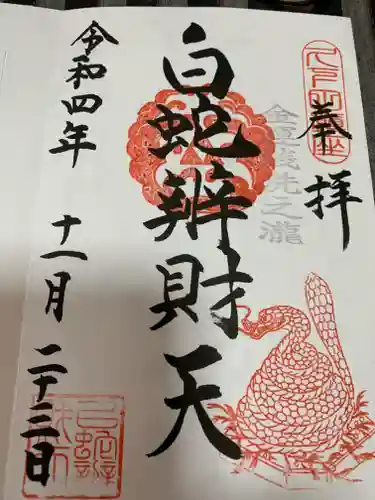 奉拝
金運銭洗之瀧
白蛇辨財天
令和四年
十一月二十三日